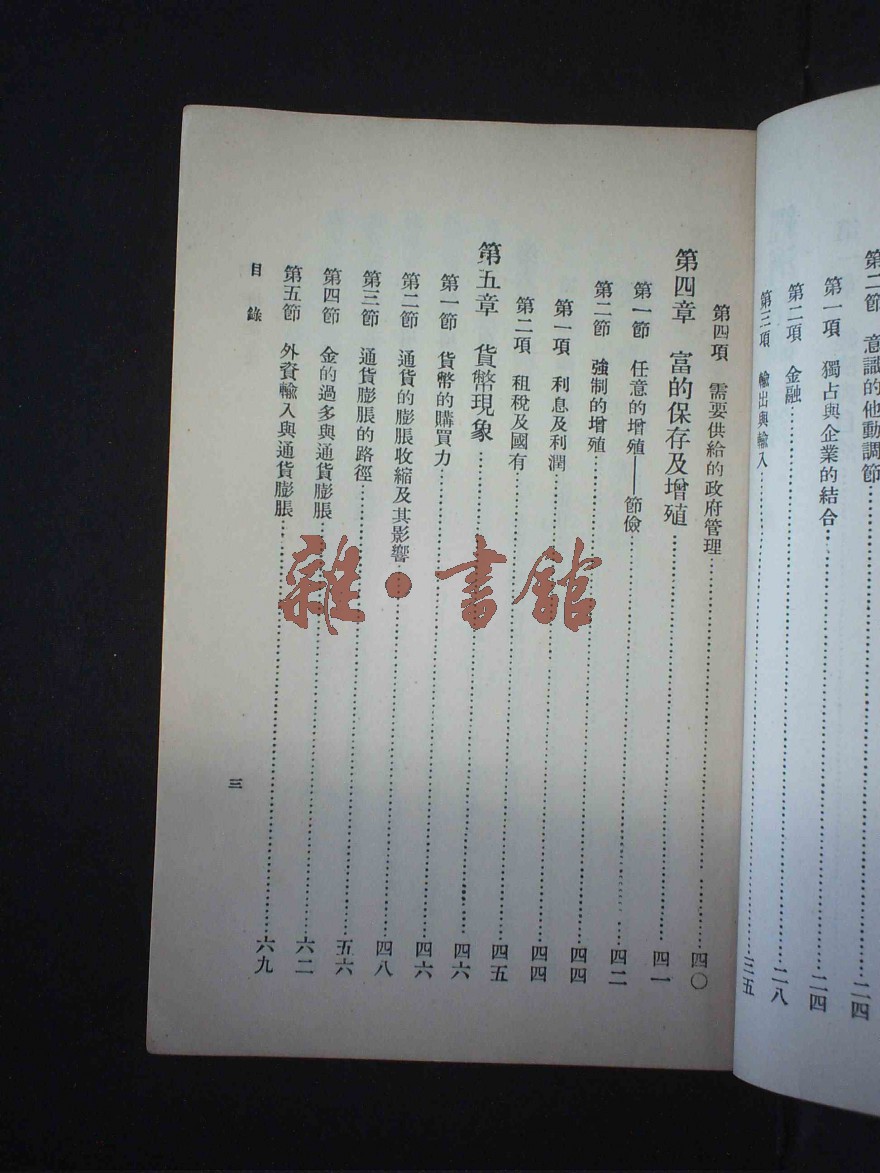 第二節 意識的他動調節……二四
第一項 獨占與企業的結合……二四
第二項 金融……二八
第三項 輸出與輸入……三五
第四項 需要供給的政府管理……四〇
第四章 富的保存及增殖……四一
第一節 任意的增殖——節儉……四二
第二節 強制的增殖……四四
第一項 利息及利潤……四四
第二項 租稅及國有……四五
第五章 貨幣現象……四六
第一節 貨幣的購買力……四六
第二節 通貨的膨脹收縮及其影響……四八
第三節 通貨膨脹的路徑……五六
第四節 金的過多與通貨膨脹……六二
第五節 外資輸入與通貨膨脹……六九
目錄
三
雜·書館